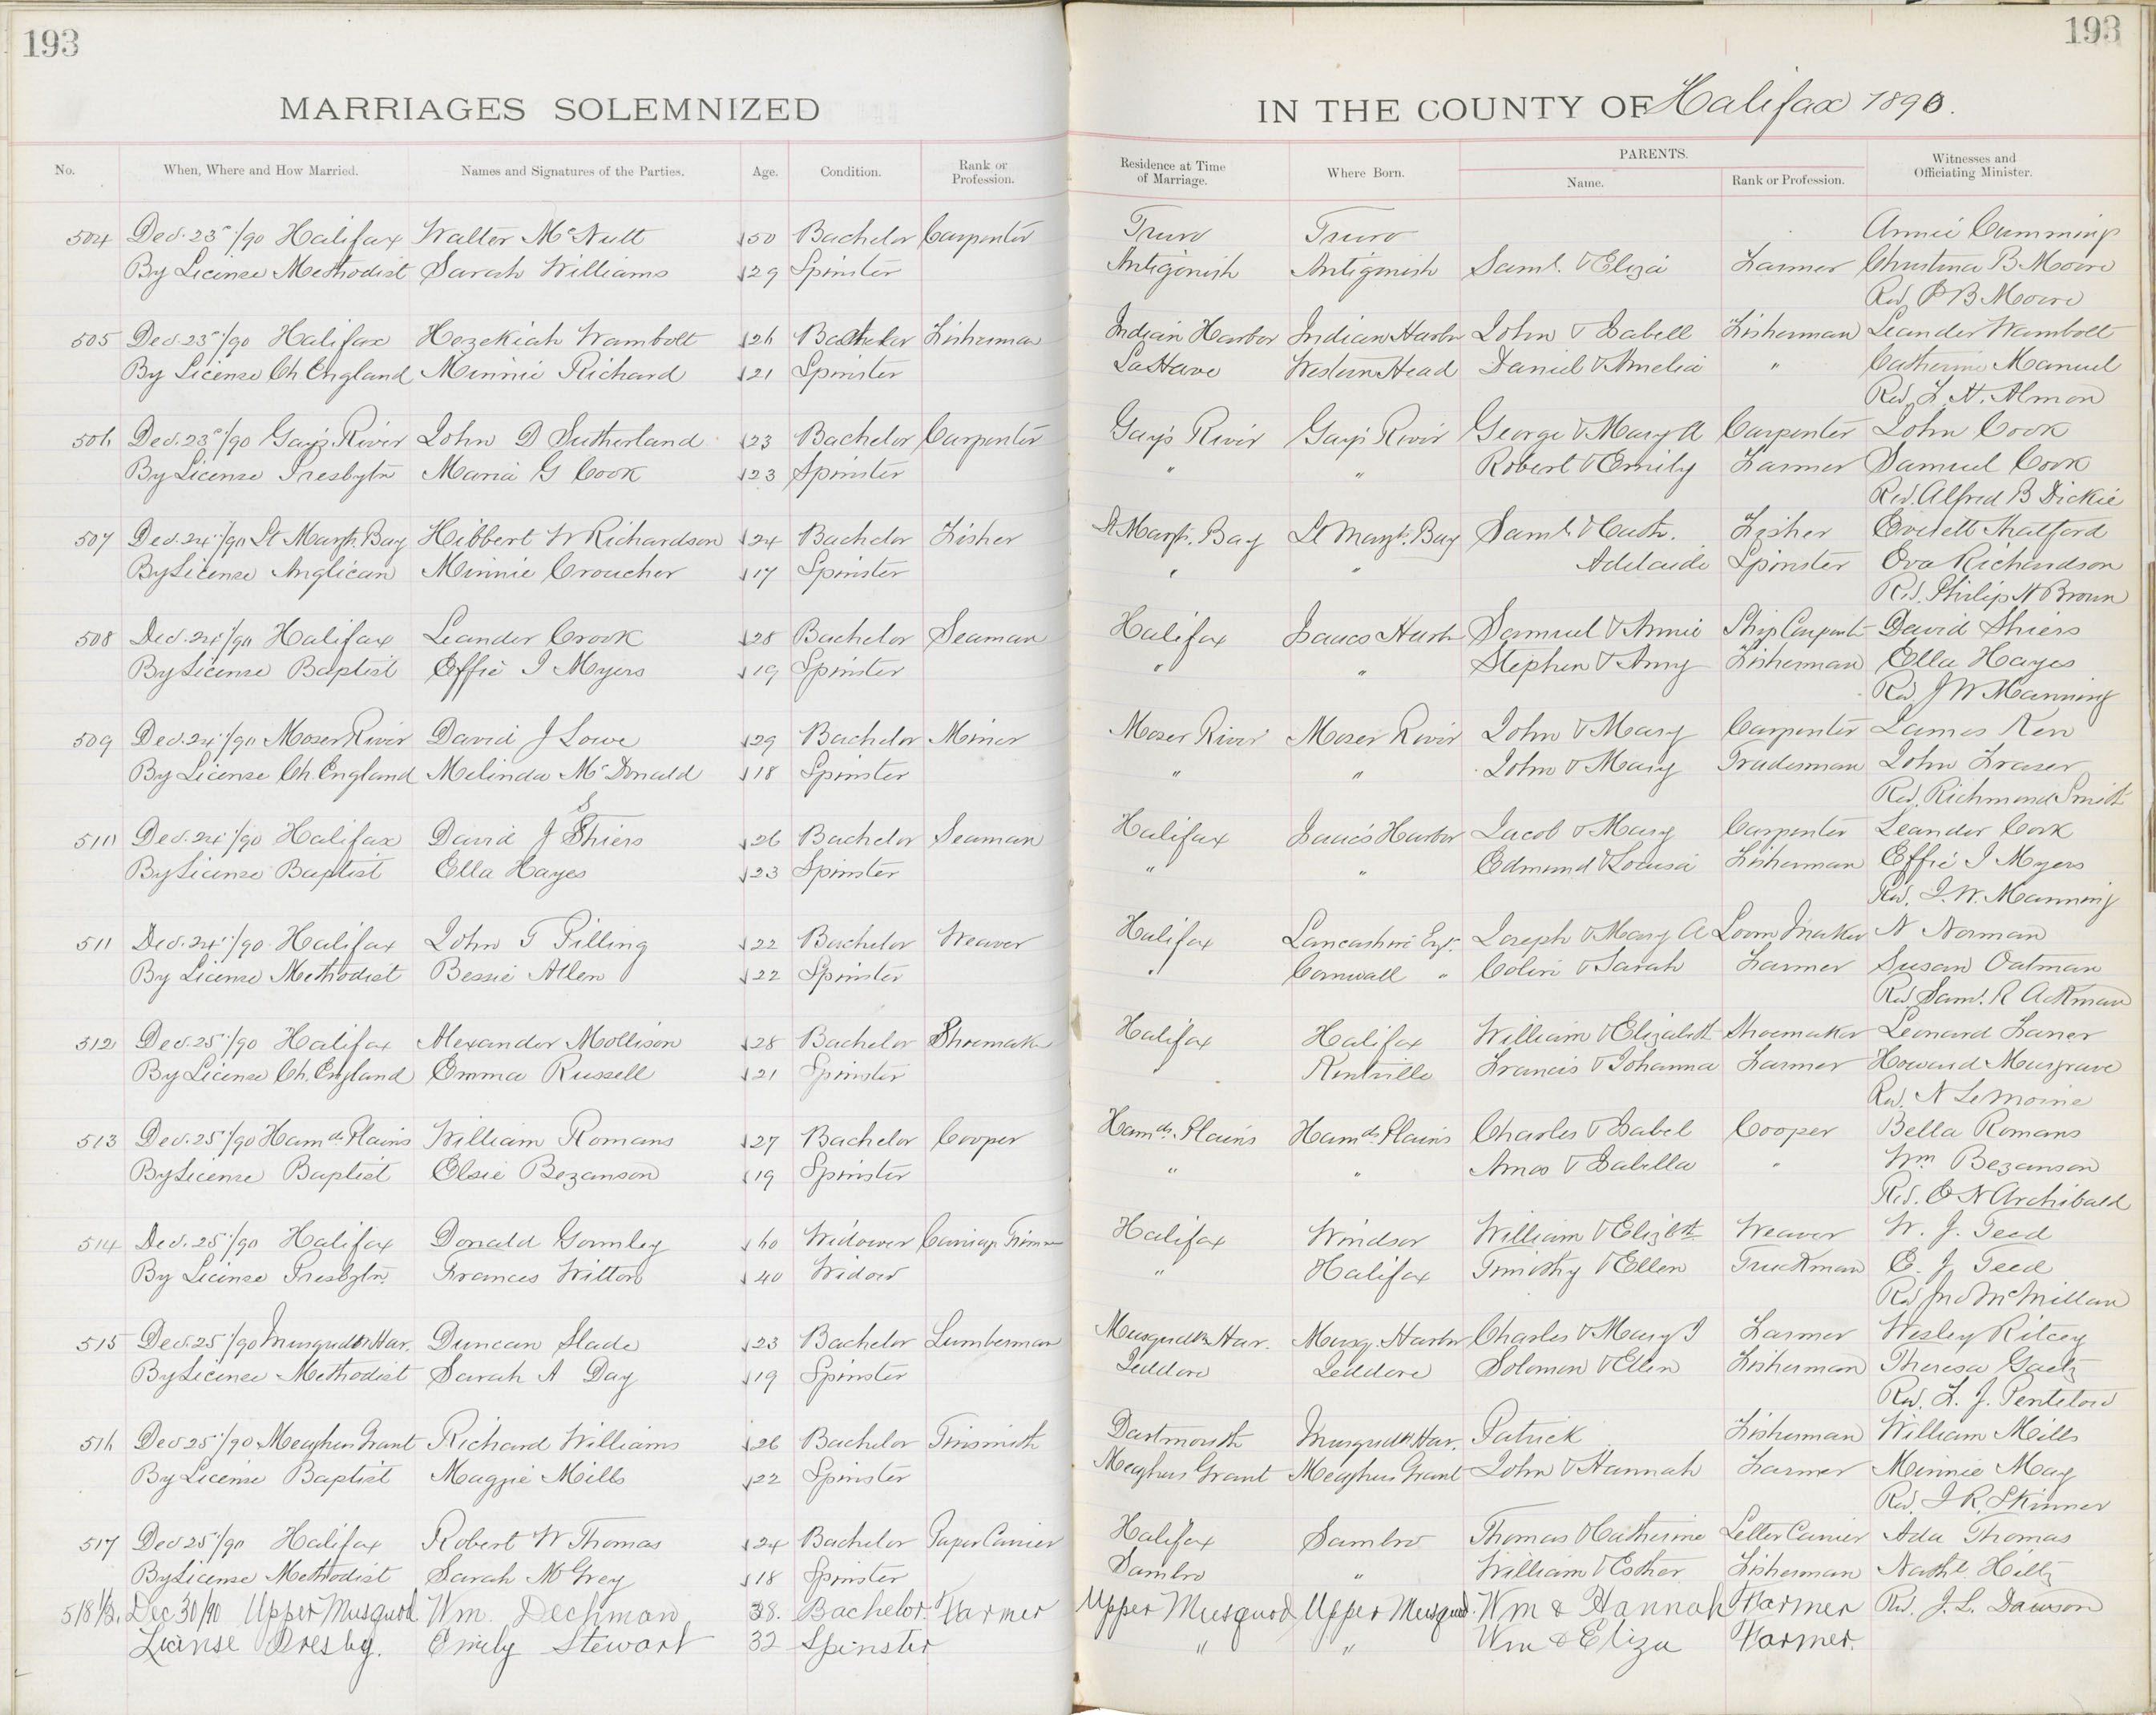 193
193
MARRIAGES SOLEMNIZED
IN THE COUNTY OF Halifax 1890.
No. When, Where and How Married. Names and Signatures of the Parties. Age. Condition. Rank or Profession. Residence at Time of Marriage. Where Born. PARENTS. Name. Rank or Profession. Witnesses and Officiating Minister.
504 Dec. 23"/90 Halifax Walter McNutt 50 Bachelor Carpenter Truro Truro Annie Cumming
By License Methodist Sarah Williams 29 Spinster Antigonish Antigonish Saml. & Eliza Farmer Christina B Moore
Rev P B Moore
505 Dec. 23"/90 Halifax Hezekiah Wambolt 26 Bachelor Fisherman Indian Harbor Indian Harbor John & Isabell Fisherman Leander Wambolt
By License Ch England Minnie Richard 21 Spinster LaHave Western Head Daniel & Amelia " Catherine Manuel
Rev. F. H. Almon
506 Dec. 23"/90 Gay's River John D Sutherland 23 Bachelor Carpenter Gay's River Gay's River George & Mary A Carpenter John Cook
By License Presbytn Maria G Cook 23 Spinster " " Robert & Emily Farmer Samuel Cook
Rev. Alfred B Dickie
507 Dec. 24"/90 St Margts. Bay Hibbert W Richardson 24 Bachelor Fisher St Margts. Bay St Margts. Bay Saml. & Cath. Fisher Everett Thalford
By License Anglican Minnie Croucher 17 Spinster " " Adelaide Spinster Eva Richardson
Rev. Philip H Brown
508 Dec. 24"/90 Halifax Leander Crook 28 Bachelor Seaman Halifax Isaacs Harb Samuel & Annie Ship Carpentr David Shiers
By License Baptist Effie I Myers 19 Spinster " " Stephen & Amy Fisherman Ella Hayes
Rev J W Manning
509 Dec. 24"/90 Moser River David J Lowe 29 Bachelor Miner Moser River Moser River John & Mary Carpenter James Ken
By License Ch. England Melinda McDonald 18 Spinster " " John & Mary Tradesman John Fraser
Rev. Richmond Smith
510 Dec. 24"/90 Halifax David J Shiers 26 Bachelor Seaman Halifax Isaac's Harbor Jacob & Mary Carpenter Leander Cook
By License Baptist Ella Hayes 23 Spinster " " Edmund & Louisa Fisherman Effie I Myers
Rev. J. W. Manning
511 Dec. 24"/90 Halifax John T Pilling 22 Bachelor Weaver Halifax Lancashire Eng. Joseph & Mary A Loom Maker N Norman
By License Methodist Bessie Allen 22 Spinster " Cornwall " Colin & Sarah Farmer Susan Oatman
Rev Saml. R Ackman
512 Dec. 25"/90 Halifax Alexander Mollison 28 Bachelor Shoemaker Halifax Halifax William & Elizabeth Shoemaker Leonard Laner
By License Ch. England Emma Russell 21 Spinster " Kentville Francis & Johanna Farmer Howard Musgrave
Rev. N LeMoine
513 Dec. 25"/90 Hamds Plains William Romans 27 Bachelor Cooper Hamds. Plains Hamds Plains Charles & Isabel Cooper Bella Romans
By License Baptist Elsie Bezanson 19 Spinster " " Amos & Isabella " Wm Bezanson
Rev. E N Archibald
514 Dec. 25"/90 Halifax Donald Gormley 60 Widower Carriage Trimmer Halifax Windsor William & Elizbth Weaver W. J. Teed
By License Presbytn. Frances Wilton 40 Widow " Halifax Timothy & Ellen Truckman E. J. Teed
Rev Jno McMillan
515 Dec. 25"/90 Musqudbt Har. Duncan Slade 23 Bachelor Lumberman Musqudbt Har. Musq. Harbor Charles & Mary J Farmer Wesley Ritcey
By License Methodist Sarah A Day 19 Spinster Jeddore Jeddore Solomon & Ellen Fisherman Theresa Gaetz
Rev. F. J. Pentelow
516 Dec 25"/90 Meaghers Grant Richard Williams 26 Bachelor Tinsmith Dartmouth Musqudbt Har. Patrick Fisherman William Mills
By License Baptist Maggie Mills 22 Spinster Meaghers Grant Meaghers Grant John & Hannah Farmer Minnie May
Rev I R. Skinner
517 Dec 25"/90 Halifax Robert W Thomas 24 Bachelor Paper Carrier Halifax Sambro Thomas & Catherine Letter Carrier Ada Thomas
By License Methodist Sarah M Grey 18 Spinster Sambro " William & Esther Fisherman Nathl. Hiltz
518½. Dec 30/90 Upper Musquod Wm. Dechman 38. Bachelor. Farmer Upper Musquod Upper Musquod. Wm & Hannah Farmer Rev. J. L. Dawson
License Presby. Emily Stewart 32 Spinster " " Wm & Eliza Farmer.